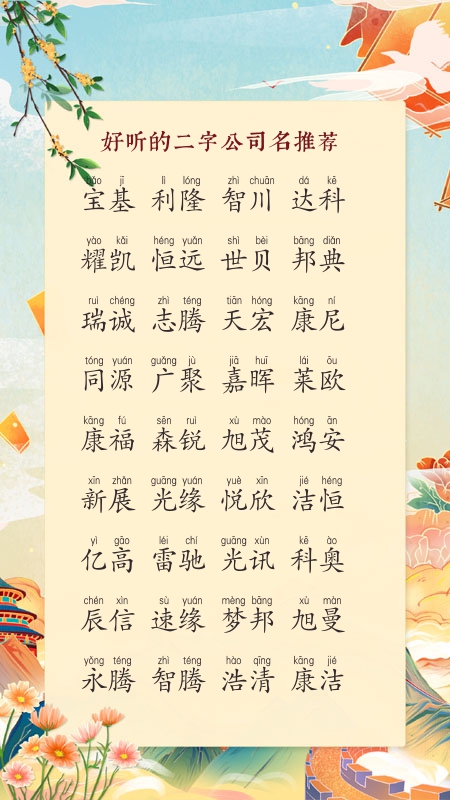 好听的二字公司名推荐
bǎo jī lì lóng zhì chuān dá kē
宝基 利隆 智川 达科
yào kǎi héng yuǎn shì bèi bāng diǎn
耀凯 恒远 世贝 邦典
ruì chéng zhì téng tiān hóng kāng ní
瑞诚 志腾 天宏 康尼
tóng yuán guǎng jù jiā huī lái ōu
同源 广聚 嘉晖 莱欧
kāng fú sēn ruì xù mào hóng ān
康福 森锐 旭茂 鸿安
xīn zhǎn guāng yuán yuè xīn jié héng
新展 光缘 悦欣 洁恒
yì gāo léi chí guāng xùn kē ào
亿高 雷驰 光讯 科奥
chén xìn sù yuán mèng bāng xù màn
辰信 速缘 梦邦 旭曼
yǒng téng zhì téng hào qīng kāng jié
永腾 智腾 浩清 康洁